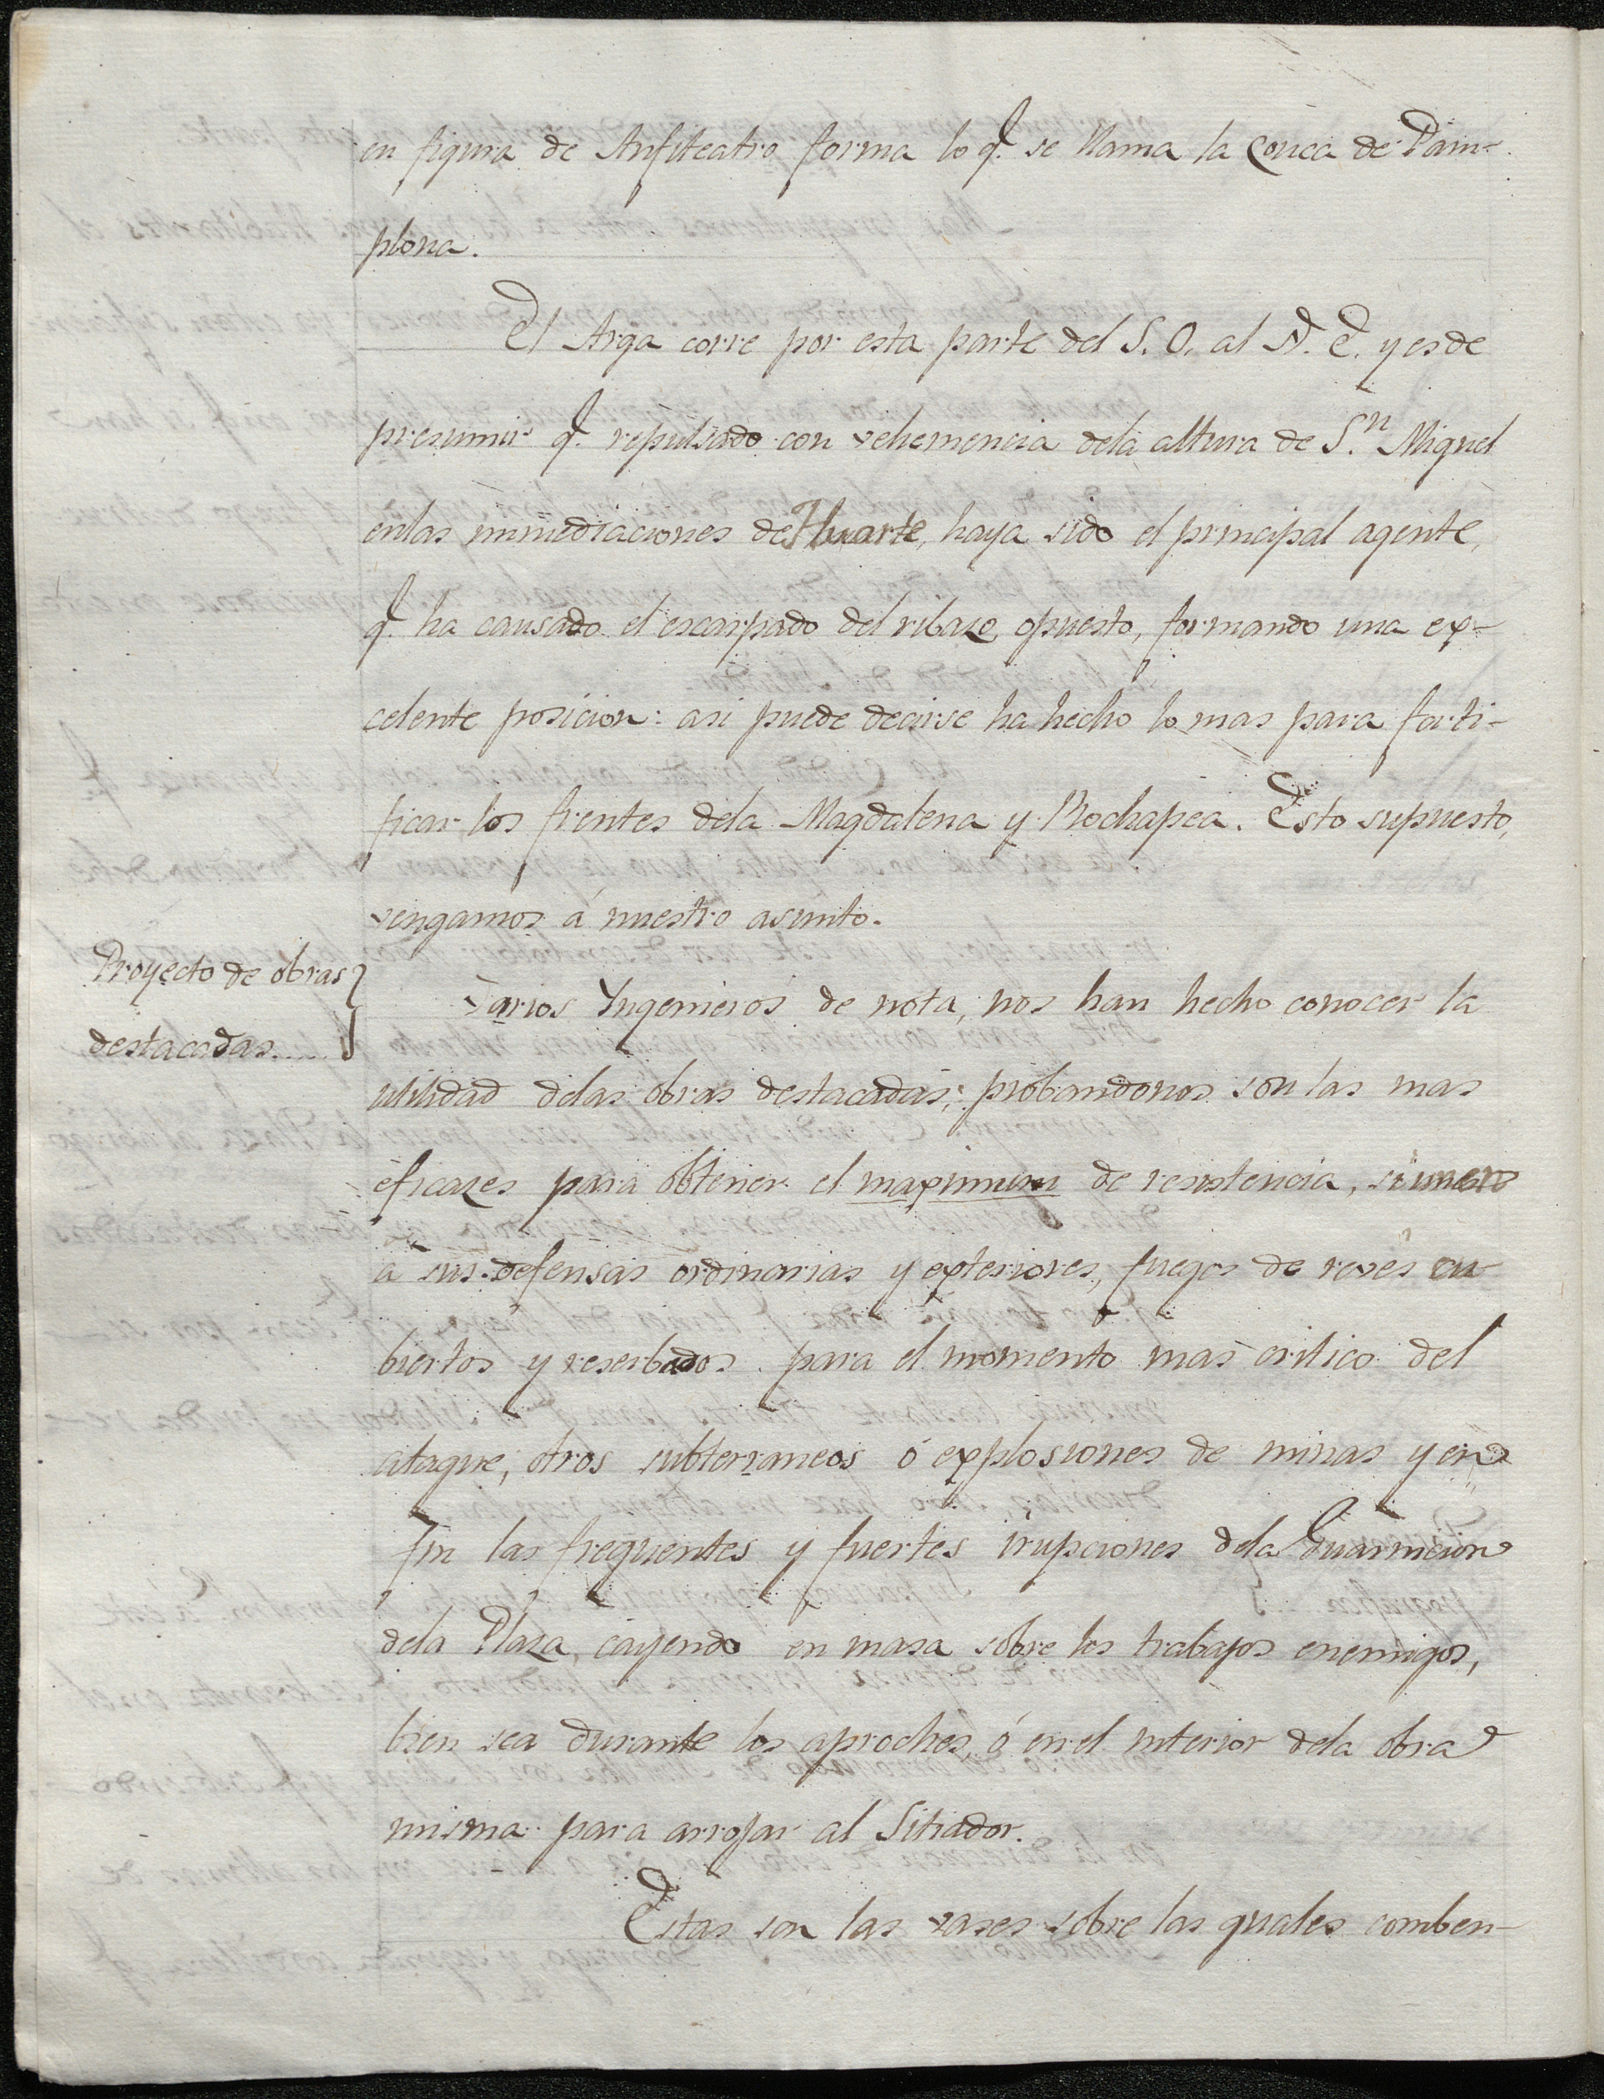 en figura de Anfiteatro forma lo q.e se llama la Conca de Pam-
plona.
El Arga corre por esta parte del S. O. al N. E. y es de
presumir q.e repulsado con vehemencia dela altura de S.n Miguel
enlas inmediaciones de Huarte, haya sido el principal agente,
q.e ha causado el escarpado del ribazo opuesto, formando una ex-
celente posicion: asi puede decirse ha hecho lo mas para forti-
ficar los frentes dela Magdalena y Rochapea. Esto supuesto,
vengamos á nuestro asunto.
Proyecto de obras
destacadas.....
Varios Yngenieros de nota, nos han hecho conocer la
utilidad delas obras destacadas; probandonos son las mas
eficazes para obtener el maximum de resistencia, si unen
á sus defensas ordinarias y exteriores, fuegos de reves cu-
biertos y reserbados para el momento mas critico del
ataque, otros subterraneos ó explosiones de minas y en
fin las freqüentes y fuertes irupciones dela Guarnicion
dela Plaza, cayendo en masa sobre los trabajos enemigos,
bien sea durante los aproches, ó en el interior dela obra
misma para arrojar al Sitiador.
Estas son las vases sobre las quales comben-